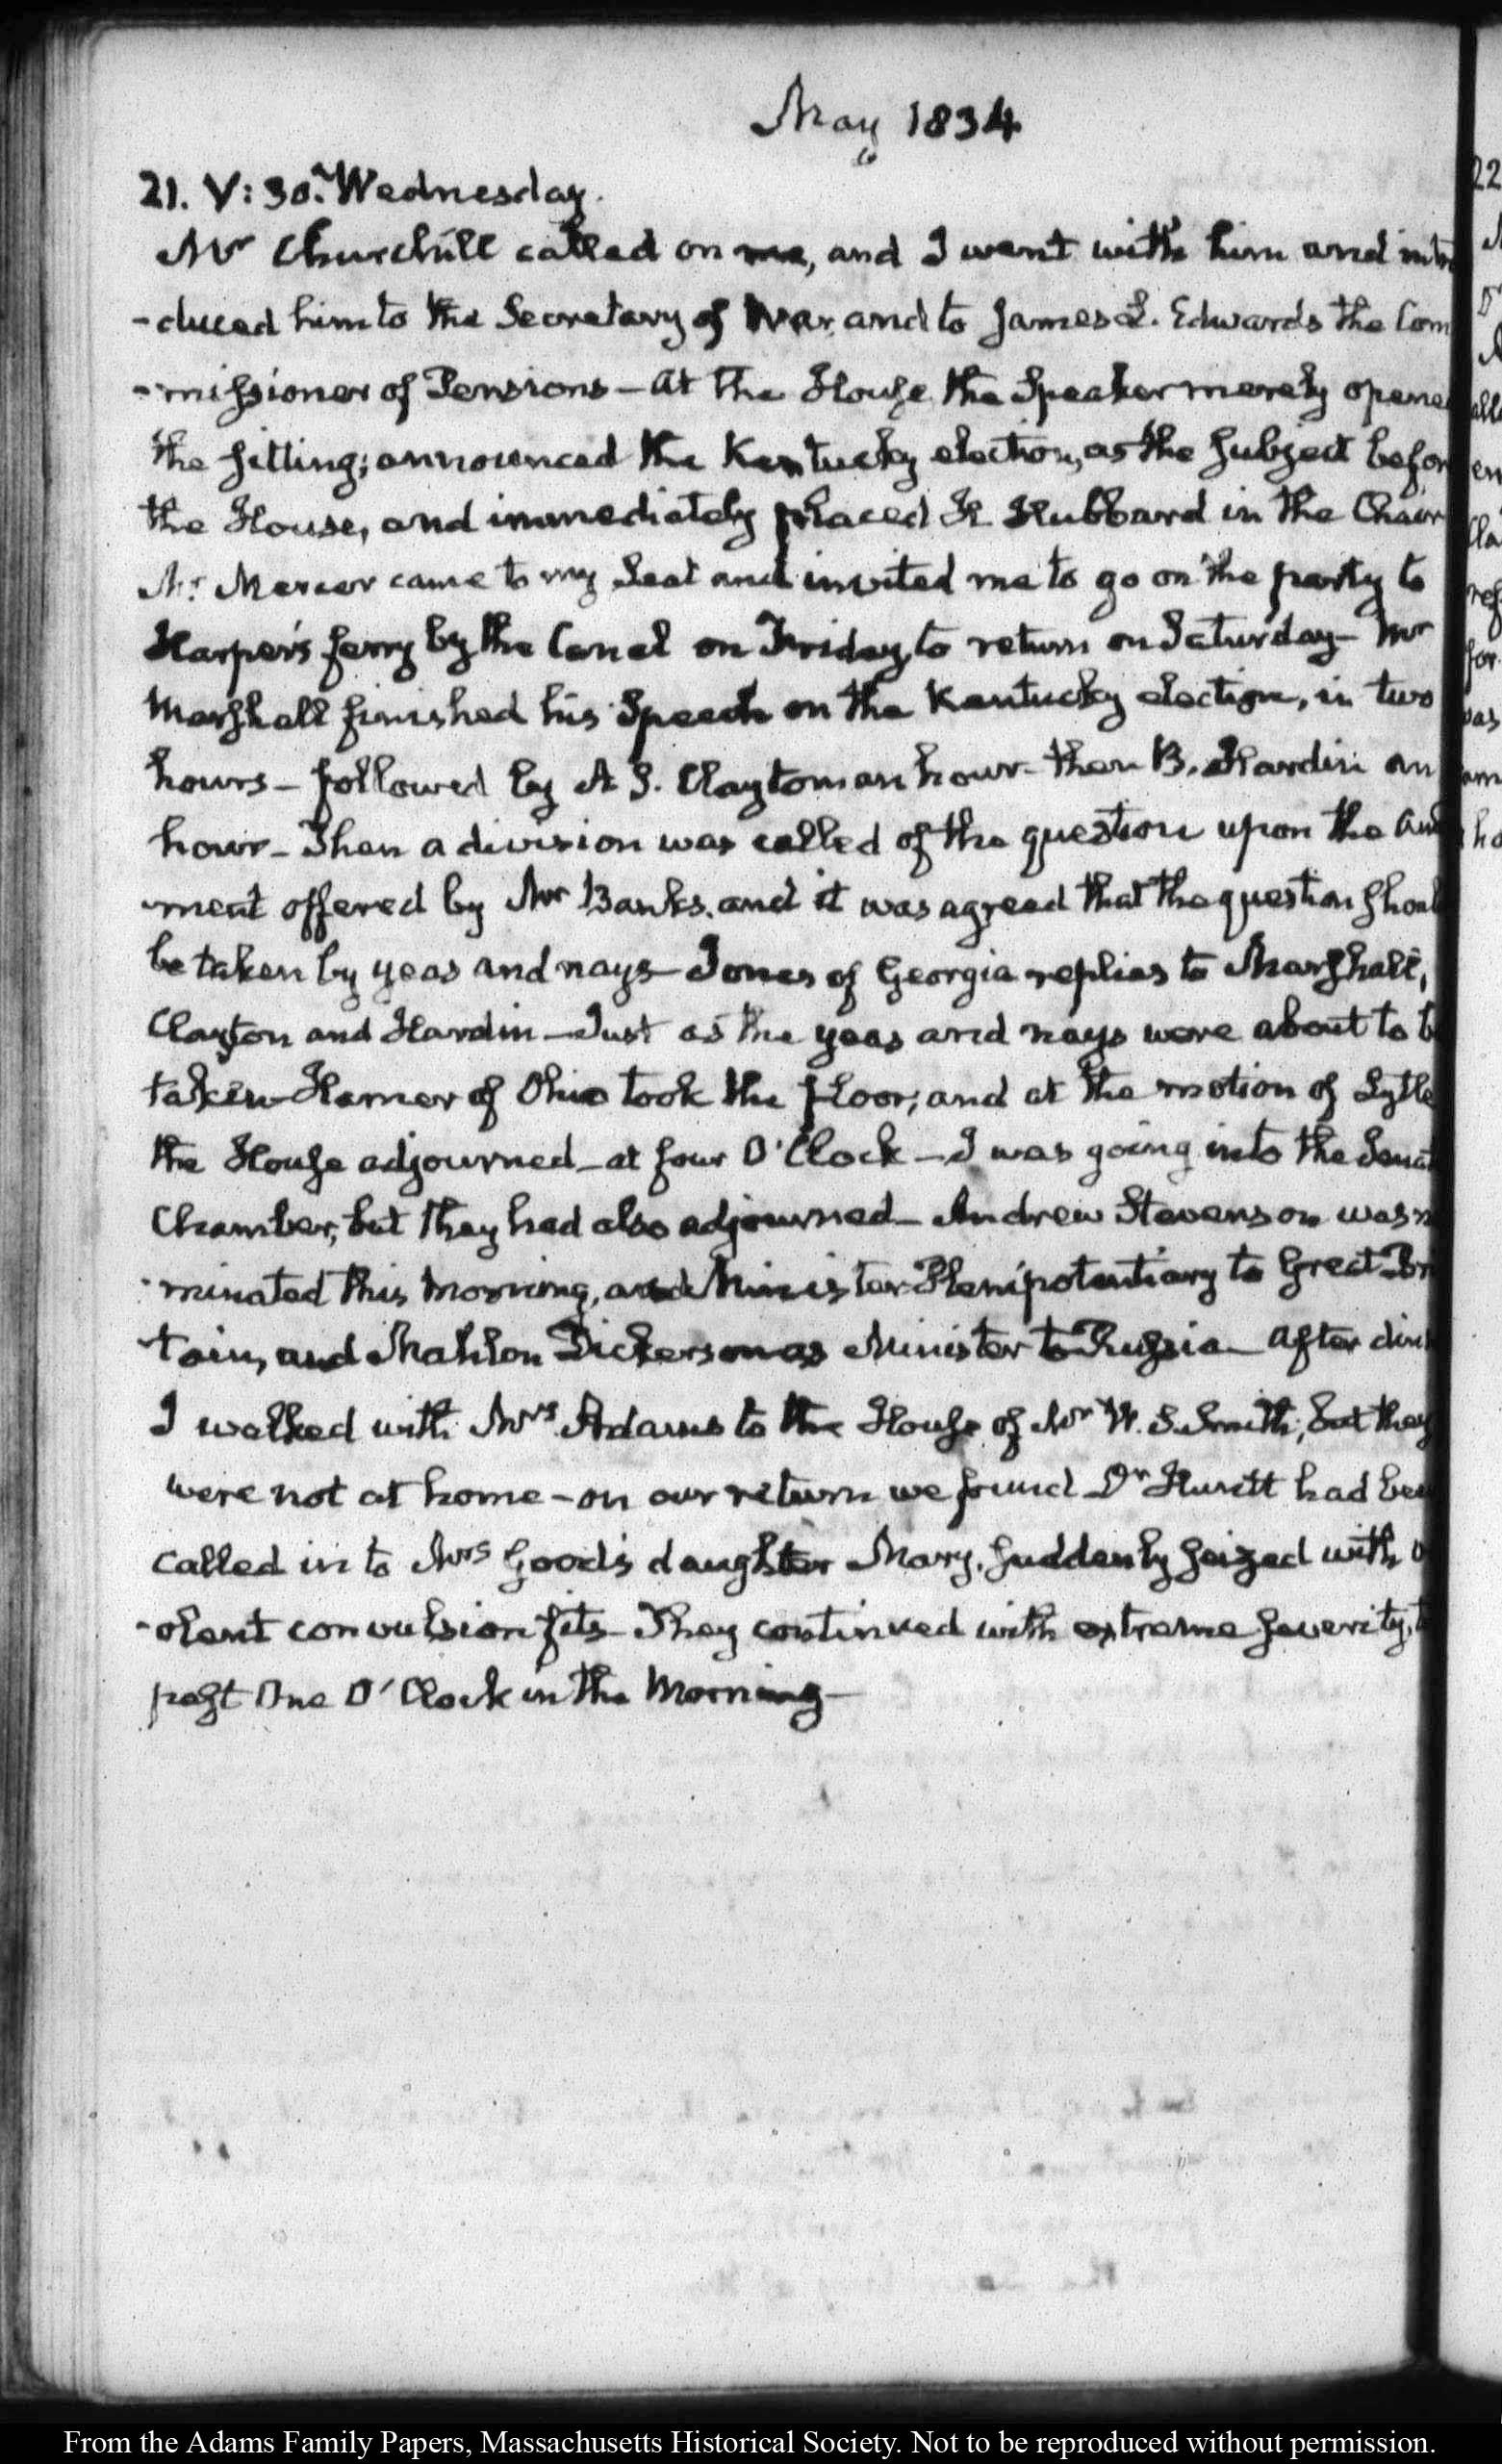 May 1834
21. V:30. Wednesday.
Mr Churchill called on me, and I went with him and intro
-duced him to the Secretary of War, and to James L. Edwards the Com
-missioner of Pensions — At the House the Speaker merely opened
the sitting; announced the Kentucky election, as the subject before
the House, and immediately placed H. Hubbard in the Chair
Mr Mercer came to my Seat and invited me to go on the party to
Harper's ferry by the Canal on Friday, to return on Saturday — Mr
Marshall finished his Speech on the Kentucky election, in two
hours — followed by A S. Clayton an hour — then B. Hardin an
hour — Then a division was called of the question upon the
ment offered by Mr Banks, and it was agreed that the question should
be taken by yeas and nays — Jones of Georgia replies to Marshall,
Clayton and Hardin — Just as the yeas and nays were about to be
taken Hamer of Ohio took the floor; and at the motion of Lytle
the House adjourned — at four O'Clock — I was going into the Senate
Chamber, but they had also adjourned — Andrew Stevenson was
minated this morning, Minister Plenipotentiary to Great Bri
tain, and Mahlon Dickerson as Minister to Russia — After
I walked with Mrs Adams to the House of Mr W. S. Smith; but they
were not at home — on our return we found Dr Huntt had been
called in to Mrs Good's daughter Mary, suddenly seized with
-olent convulsion fits — They continued with extreme severity,
past One O'Clock in the Morning —
22
From the Adams Family Papers, Massachusetts Historical Society. Not to be reproduced without permission.